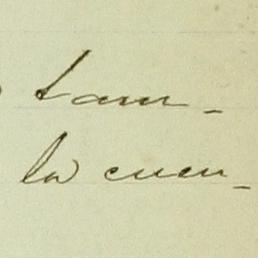 tam-
la cuen-